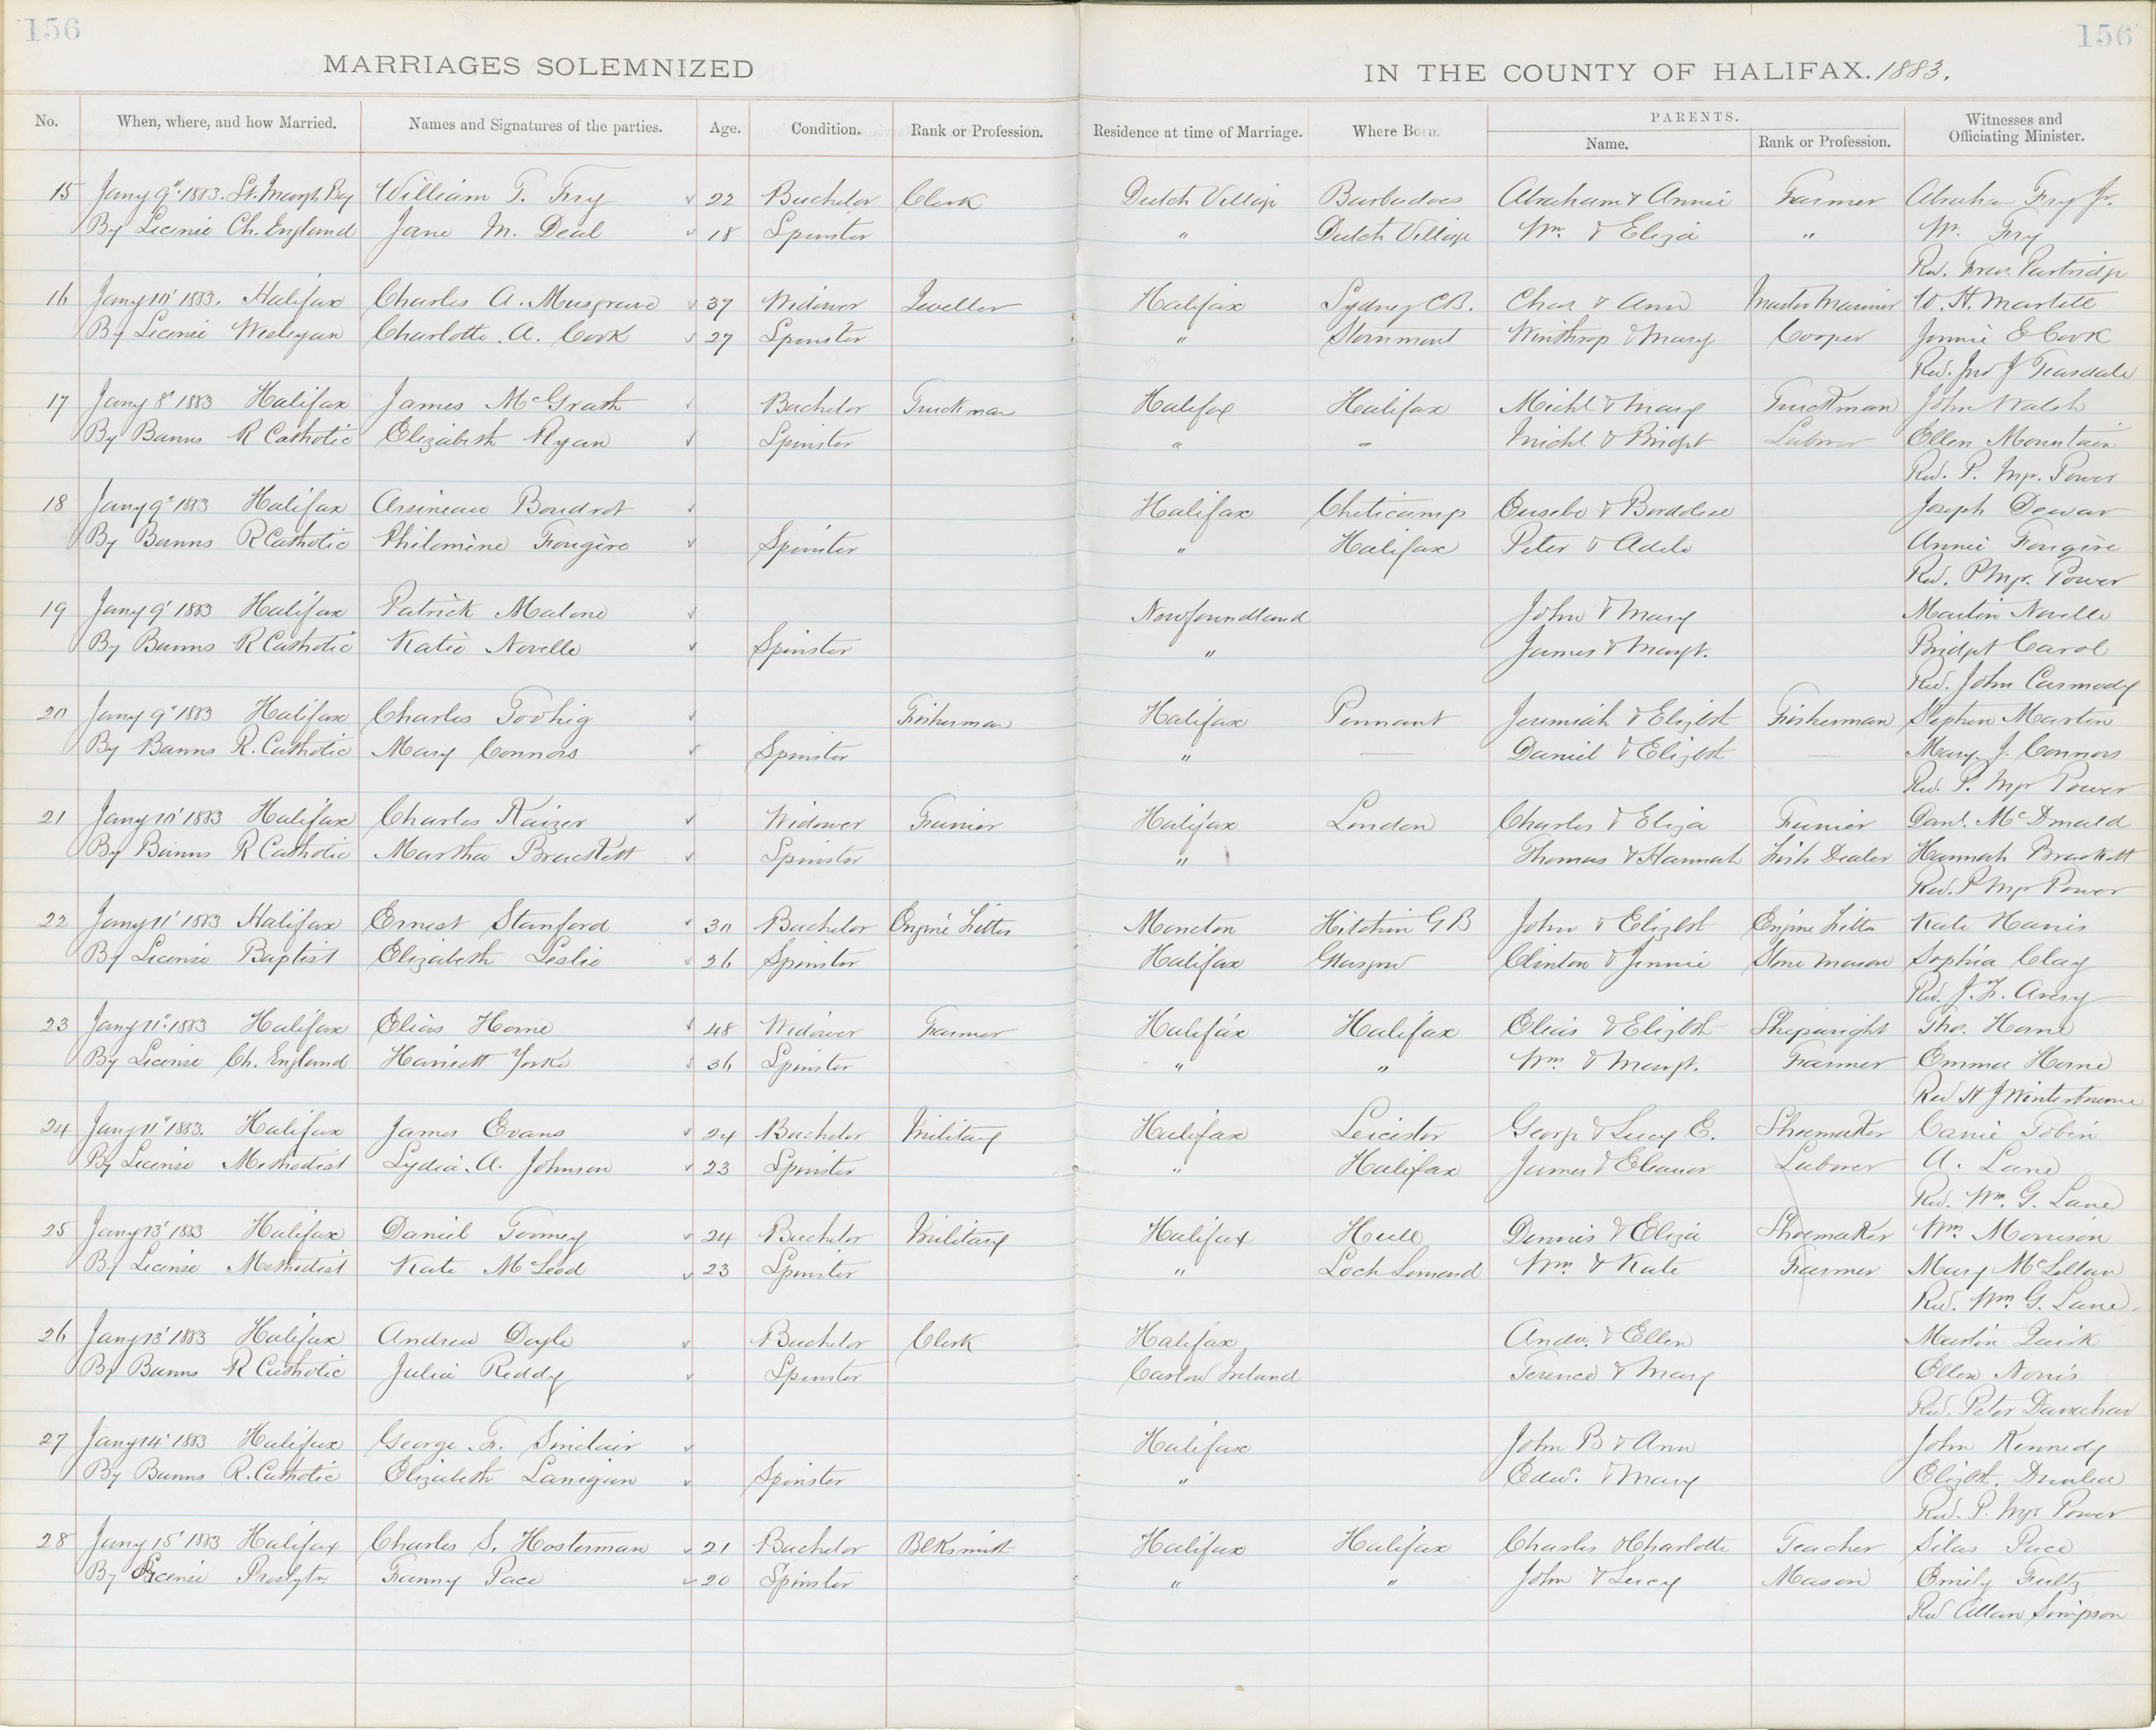 156
156
MARRIAGES SOLEMNIZED
IN THE COUNTY OF HALIFAX. 1883.
No. When, where, and how Married. Names and Signatures of the parties. Age. Condition. Rank or Profession. Residence at time of Marriage. Where Born. PARENTS. Name. Rank or Profession. Witnesses and Officiating Minister.
15 Jany 9" 1883. St. Margts Bay William T. Fry 22 Bachelor Clerk Dutch Village Barbadoes Abraham & Annie Farmer Abraham Fry Jr.
By License Ch. England Jane M. Deal 18 Spinster " Dutch Village Wm. & Eliza " W. Fry
Rev. Partridge
16 Jany 10' 1883. Halifax Charles A. Musgrave 37 Widower Jeweller Halifax Sydney C.B. Chas & Ann Master Mariner W. H. Martell
By License Wesleyan Charlotte A. Cook 27 Spinster " Stormont Winthrop & Mary Cooper Jennie E Cook
Rev. Jno J Teasdale
17 Jany 8" 1883 Halifax James McGrath Bachelor Truckman Halifax Halifax Michl & Mary Truckman John Walsh
By Banns R Catholic Elizabeth Ryan Spinster " " Michl & Bridgt Labrer Ellen Mountain
Rev. P. Mgr. Power
18 Jany 9" 1883 Halifax Boudrot Halifax Cheticamp Eusebe & Joseph Dewar
By Banns R Catholic Philomène Fougère Spinster " Halifax Peter & Adele Annie Fougère
Rev. P Mgr. Power
19 Jany 9' 1883 Halifax Patrick Malone Newfoundland John & Mary Martin Novelle
By Banns R Catholic Katie Novelle Spinster " James & Margt. Bridget Carol
Rev. John Carmody
20 Jany 9" 1883 Halifax Charles Toohig Fisherman Halifax Pennant Jeremiah & Elizbth Fisherman Stephen Martin
By Banns R. Catholic Mary Connors Spinster " — Daniel & Elizbth — Mary J. Connors
Rev. P. Mgr Power
21 Jany 10' 1883 Halifax Charles Kaizer Widower Furrier Halifax London Charles & Eliza Furrier Danl. McDonald
By Banns R Catholic Martha Brackett Spinster " Thomas & Hannah Fish Dealer Hannah Brackett
Rev. P Mgr Power
22 Jany 11' 1883 Halifax Ernest Stanford 30 Bachelor Engine Fitter Moncton Hitchin G B John & Elizbth Engine Fitter Kate Harris
By License Baptist Elizabeth Leslie 26 Spinster Halifax Glasgow Clinton & Jennie Stone Mason Sophia Clay
Rev. J. F. Avery
23 Jany 11" 1883 Halifax Elias Horne 48 Widower Farmer Halifax Halifax Elias & Elizbth Shipwright Tho. Horne
By License Ch. England Harriett Yorke 36 Spinster " " Wm & Margt. Farmer Emma Horne
Rev H J Winterbourne
24 Jany 11" 1883. Halifax James Evans 24 Bachelor Military Halifax Leicester George & Lucy E. Shoemaker Carrie Tobin
By License Methodist Lydia A. Johnson 23 Spinster " Halifax James & Eleanor Labrer A. Lane
Rev. Wm. G. Lane
25 Jany 13' 1883 Halifax Daniel Toomey 24 Bachelor Military Halifax Hull Dennis & Eliza Shoemaker Wm. Morrison
By License Methodist Kate McLeod 23 Spinster " Loch Lomond Wm & Kate Farmer Mary McLellan
Rev. Wm. G. Lane
26 Jany 13' 1883 Halifax Andrew Doyle Bachelor Clerk Halifax Andw. & Ellen Martin Quirk
By Banns R Catholic Julia Reddy Spinster Carlow Ireland Terence & Mary Ellen Norris
Rev. Peter Danahar
27 Jany 14' 1883 Halifax George F. Sinclair Halifax John B & Ann John Kennedy
By Banns R. Catholic Elizabeth Lanigan Spinster " Edw. & Mary Elizbth.
Rev. P. Mgr Power
28 Jany 15' 1883 Halifax Charles S. Hosterman 21 Bachelor Blksmith Halifax Halifax Charles & Charlotte Teacher Silas Pace
By License Presbytn Fanny Pace 20 Spinster " " John & Lucy Mason Emily Fultz
Rev Allan Simpson